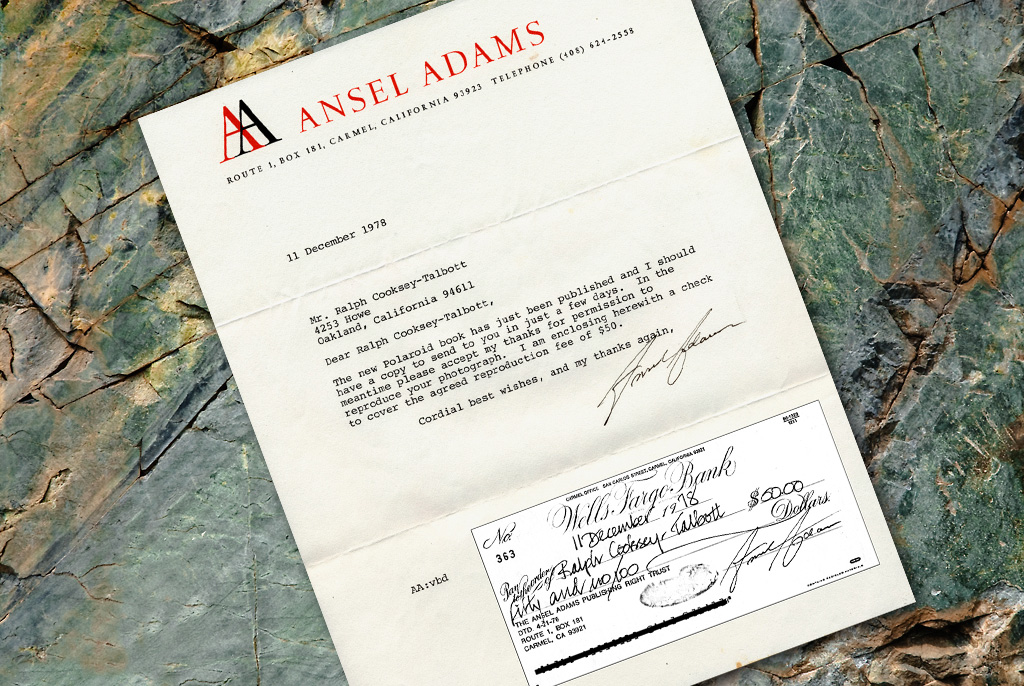 AA ANSEL ADAMS
ROUTE 1, BOX 181, CARMEL, CALIFORNIA 93923 TELEPHONE (408) 624-2558
11 December 1978
Mr. Ralph Cooksey-Talbott
4253 Howe
Oakland, California 94611
Dear Ralph Cooksey-Talbott,
The new Polaroid book has just been published and I should
have a copy to send to you in just a few days. In the
meantime please accept my thanks for permission to
reproduce your photograph. I am enclosing herewith a check
to cover the agreed reproduction fee of $50.
Cordial best wishes, and my thanks again,
Ansel Adams
AA:vbd
CARMEL OFFICE SAN CARLOS STREET, CARMEL, CALIFORNIA 93921
Wells Fargo Bank
No. 363
11 December 1978
Pay to the order of Ralph Cooksey-Talbott $50.00
Fifty and no/100 Dollars
THE ANSEL ADAMS PUBLISHING RIGHT TRUST
DTD 4-21-76
ROUTE 1, BOX 181
CARMEL, CA 93921
Ansel Adams